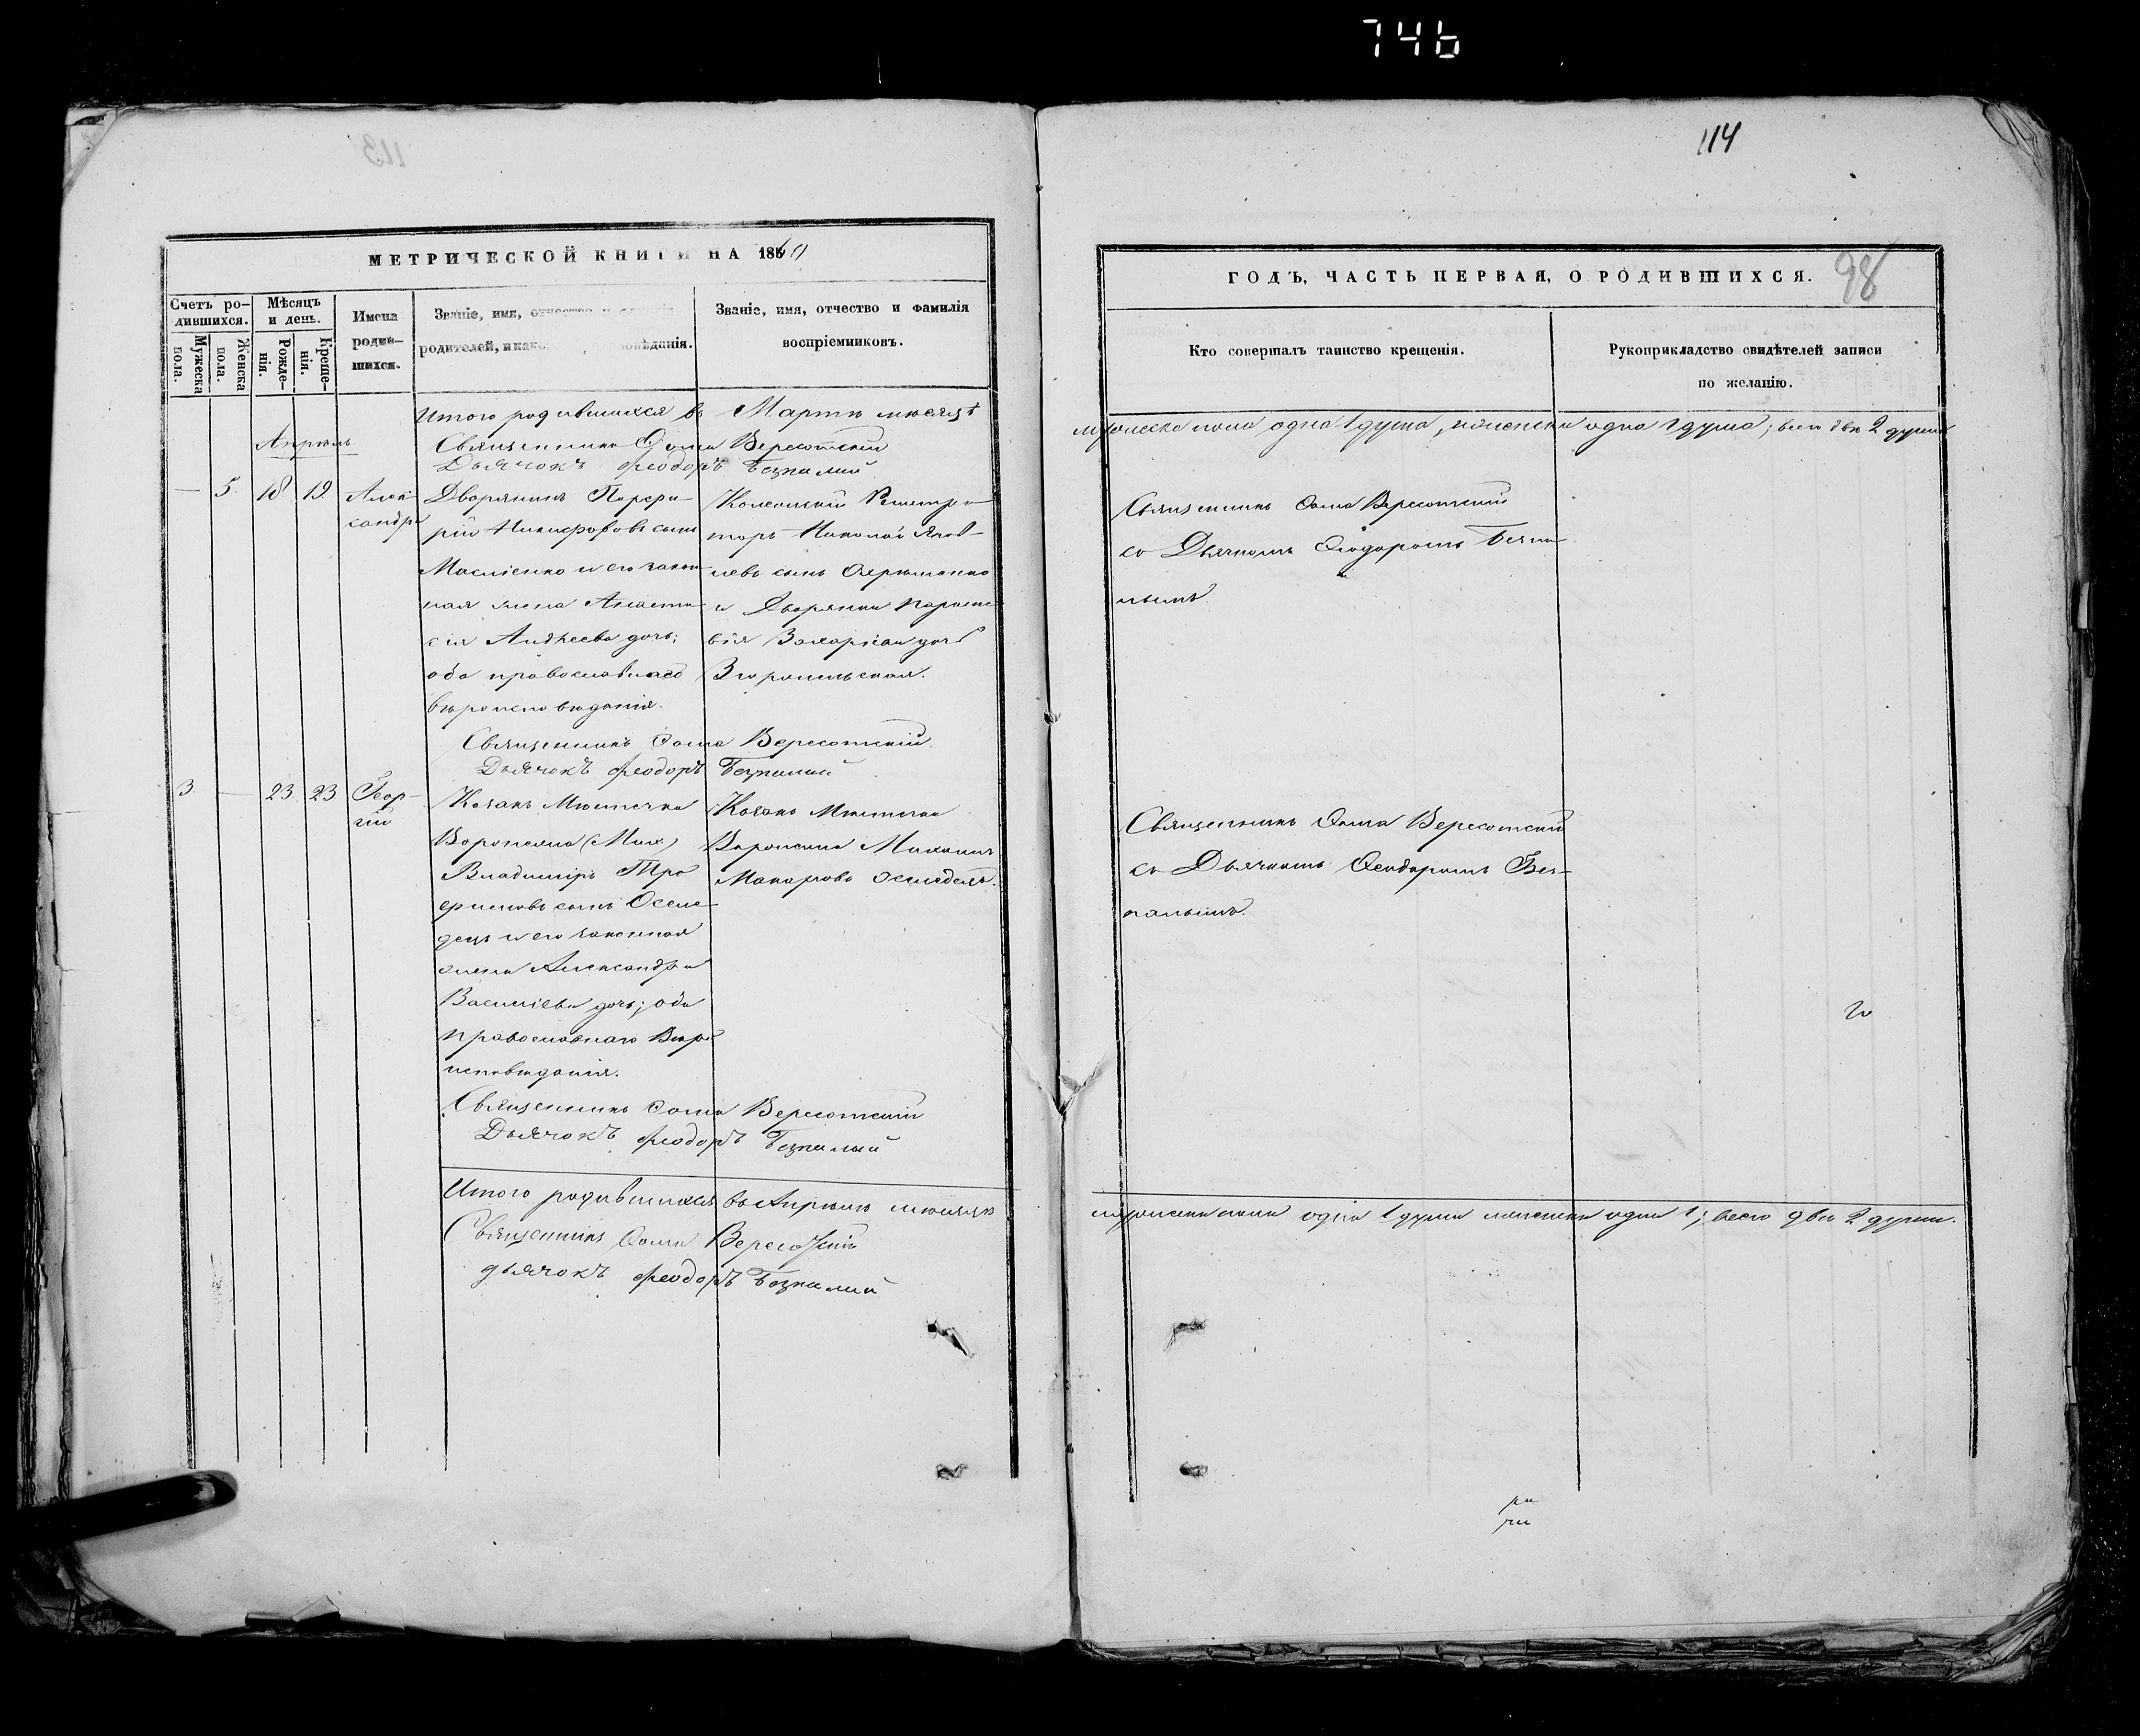 746
114
МЕТРИЧЕСКОЙ КНИГИ НА 1860
Счетъ ро-
дившихся.
Мужеска
пола.
Женска
пола.
Мѣсяцъ
и день.
Рожде-
нія.
Креще-
нія.
Имена
родив-
шихся.
Званіе, имя,
родителей,
Званіе, имя, отчество и фамилія
воспріемниковъ.
Итого родившихся въ Мартѣ мѣсяцѣ
Апрѣль
Священникъ Ѳома Вересотскій
Дьячокъ Феодоръ Безпалый
— 5. 18 19. Алек-
сандра
Дворянинъ Порфи-
рій Никифоровъ сынъ
Масліенко и его закон-
ная жена Анаста-
сія Андреева дочь;
оба православнаго
вѣроисповѣданія.
Колежскій Регистра-
торъ Николай Яков-
левъ сынъ
и Дворянка Параске-
вія Захаріева дочь
Священникъ Ѳома Вересотскій.
Дьячокъ Феодоръ Безпалый
3. — 23. 23 Геор-
гій
Козакъ Мѣстечка
Воронежа (Мих)
Владиміръ Тро
фимовъ сынъ Оселе-
децъ и его законная
жена Александра
Василіева дочь; оба
православнаго Вѣро
исповѣданія.
Козакъ Мѣстечка
Воронежа Михаилъ
Макаровъ Оселедецъ.
Священникъ Ѳома Вересотскій
Дьячокъ Феодоръ Безпалый
Итого родившихся въ Апрѣлѣ мѣсяцѣ
Священникъ Ѳома Вересотскій
дьячокъ Феодоръ Безпалый
ГОДЪ, ЧАСТЬ ПЕРВАЯ, О РОДИВШИХСЯ.
98
Кто совершалъ таинство крещенія.
Рукоприкладство свидѣтелей записи
по желанію.
мужеска пола одна 1 душа, женска одна 1 душа; всего двѣ 2 души
Священникъ Ѳома Вересотскій
со Дьячкомъ Ѳеодоромъ Безпа-
лымъ.
Священникъ Ѳома Вересотскій
съ Дьячкомъ Ѳеодоромъ Без-
палымъ.
мужеска пола одна 1 душа женска одна 1; всего двѣ 2 души.